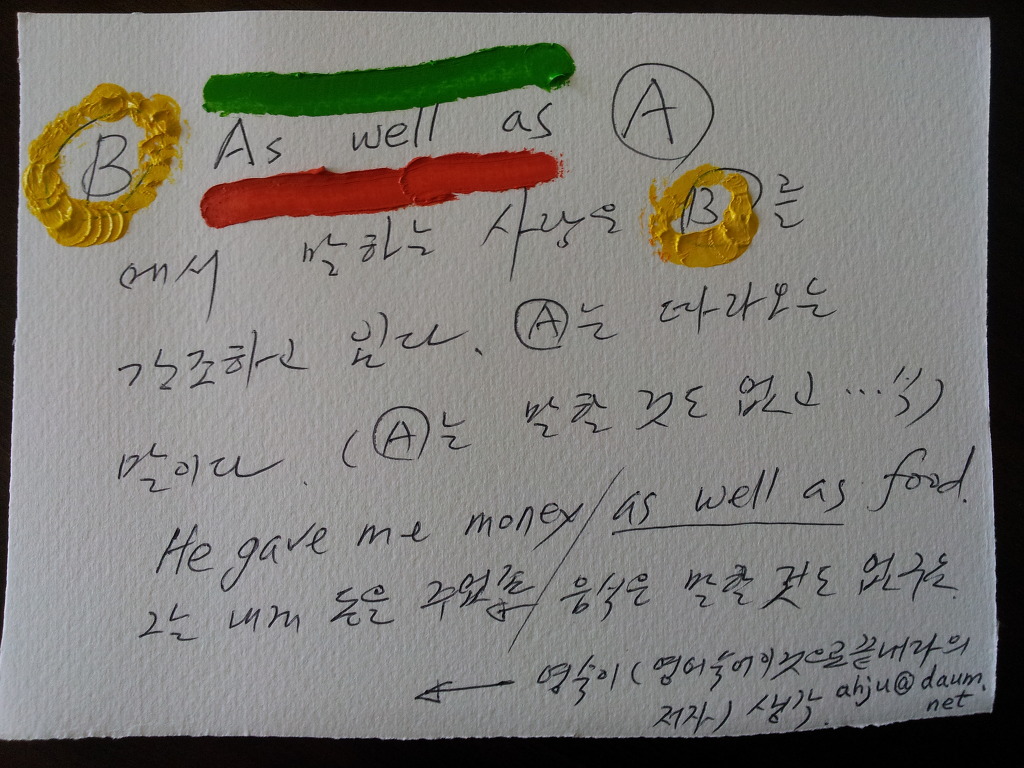 B As well as A
에서 말하는 사람은 B를
강조하고 있다. A는 따라오는
말이다. (A는 말할 것도 없고…식)
He gave me money/as well as food.
그는 내게 돈을 주었죠/음식은 말할 것도 없구는.
← 영숙이(영어숙어이것으로끝내라의
저자) 생각. ahju@daum.
net